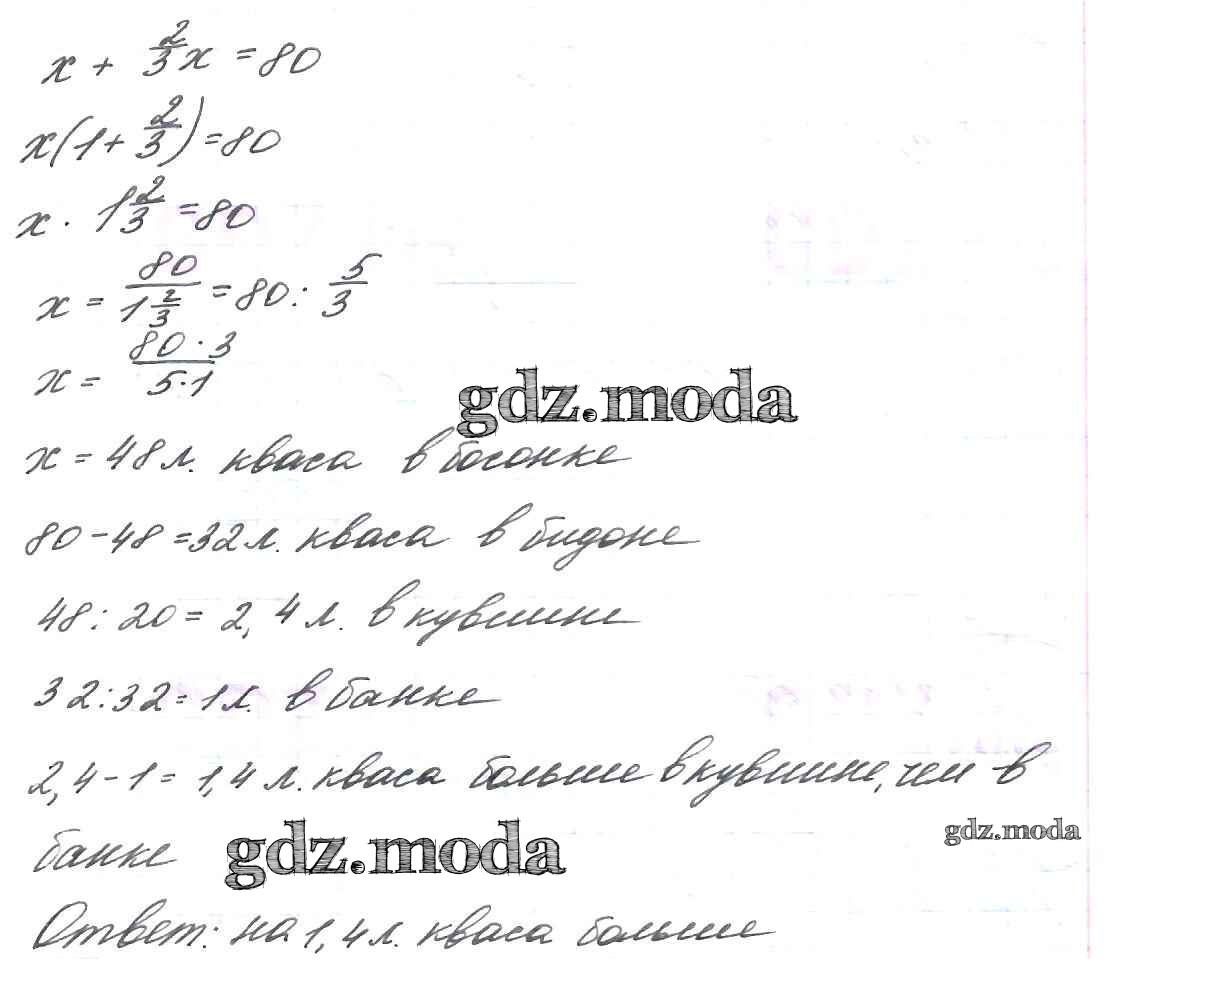 x + 2/3 x = 80
x(1 + 2/3) = 80
x · 1 2/3 = 80
x = 80 / 1 2/3 = 80 : 5/3
x = 80 · 3 / 5 · 1
gdz.moda
x = 48 л. кваса в босонке
80 - 48 = 32 л. кваса в бидоне
48 : 20 = 2,4 л. в кувшине
32 : 32 = 1 л. в банке
2,4 - 1 = 1,4 л. кваса больше в кувшине, чем в
банке
gdz.moda
gdz.moda
Ответ: на 1,4 л. кваса больше